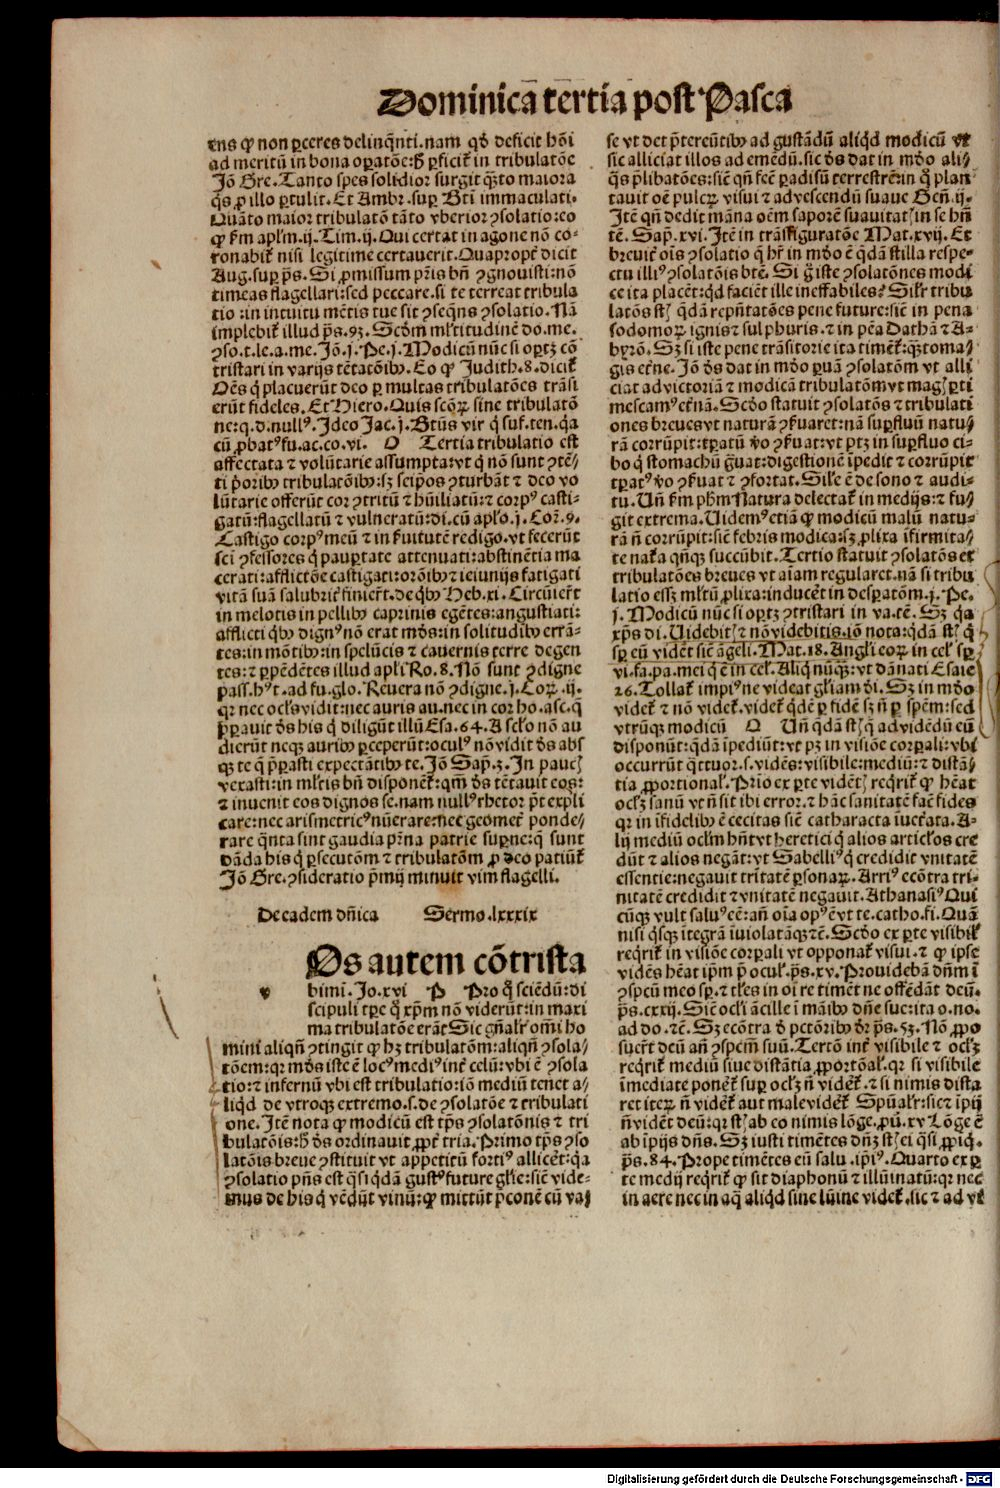 Dominicā tertia post Pasca
ens ꝙ non ꝑceres delinq̄nti. nam qđ deficit hōi
ad meritū in bona oꝑatōe: ꝑficit̃ in tribulatōe
Jō Gre. Tanto spes solidior surgit q̄to maiora
q̄s ꝓ illo ꝑtulit. Et Ambr. suꝑ Bti immaculati.
Quāto maior tribulatō tāto vberior ꝯsolatio: eo
ꝙ ẜm apl̄m. ij. Tim. ij. Qui certat in agone nō co⸗
ronabit̃ nisi legitime certauerit. Quapropt̃ dicit
Aug. suꝑ p̄s. Si ꝓmissum pr̄is bn̄ ꝯgnouisti: nō
timeas flagellari: sed peccare. si te terreat tribula
tio: in intuitu mētis tue sit ꝯseq̄ns ꝯsolatio. Nā
implebit̃ illud p̄s. 93. Scd̄m ml̄titudinē do. me.
ꝯso. t. le. a. me. Jō. j. Pe. j. Modicū nūc si oꝑtꝫ cō
tristari in varijs tētatōibꝰ. Eo ꝙ Judith. 8. dicit̃
Oēs q̇ placuerūt deo ꝑ multas tribulatōes trāsi
erūt fideles. Et Hiero. Quis scōꝝ sine tribulatō
ne: q. d. nullꝰ. Jdeo Jac. j. Btūs vir q̇ suf. ten. qa
cū ꝓbatꝰ fu. ac. co. vi. O Tertia tribulatio est
affectata ⁊ volūtarie assumpta: vt q̇ nō sunt ꝯtē⸗
ti p̄oribꝰ tribulatōibꝰ: sꝫ seip̄os ꝯturbāt ⁊ deo vo
lūtarie offerūt cor ꝯtritū ⁊ hūiliatū: ⁊ corpꝰ casti⸗
gatū: flagellatū ⁊ vulneratū: di. cū apl̄o. j. Cor. 9.
Castigo corpꝰ meū ⁊ in ẜuitutē redigo. vt fecerūt
scī ꝯfessores q̇ pauꝑtate attenuati: abstinētia ma
cerati: afflictōe castigati: orōibꝰ ⁊ ieiunijs fatigati
vitā suā salubrit̃ finier̄t. de qibꝰ Heb. xi. Circuier̄t
in melotis in pellibꝰ caprinis egētes: angustiati:
afflicti qibꝰ dignꝰ nō erat mūdꝰ: in solitudibꝰ errā⸗
tes: in mōtibꝰ: in spelūcis ⁊ cauernis terre degen
tes: ⁊ ꝑpēdētes illud apl̄i Ro. 8. Nō sunt ꝯdigne
pass. hꝰt. ad fu. glo. Reuera nō ꝯdigne. j. Coꝝ. ij.
qr nec ocl̄s vidit: nec auris au. nec in cor ho. asc. q̄
p̄ꝑauit ds his q̇ diligūt illū Esa. 64. A sel̄o nō au
dierūt neqꝫ auribꝰ ꝑceperūt: oculꝰ nō vidit ds abs
qꝫ te q̄ p̄ꝑasti expectātibꝰ te. Jō Sap. 3. Jn paucꝭ
vexasti: in ml̄tis bn̄ disponēt̃: qm̄ ds tētauit eos:
⁊ inuenit eos dignos se. nam nullꝰ rhetor p̄t expli
care: nec arismetricꝰ nūerare: nec geomet̃ ponde⸗
rare q̄nta sint gaudia pr̄na patrie suꝑne: q̄ sunt
dāda his q̇ ꝑsecutōm ⁊ tribulatōm ꝓ deo patiūt̃
Jō Gre. ꝯsideratio p̄mij minuit vim flagelli.
De eadem dn̄ica Sermo. lxxxix
Ds autem cōtrista
bimī. Jo. xvi P Pro q̄ sciēdū: di
scipuli tꝑe q̄ xp̄m nō viderūt: in maxi
ma tribulatōe erāt Sic gn̄al̄r om̄i ho
mini aliqn̄ ꝯtingit ꝙ hꝫ tribulatōm: aliqn̄ ꝯsola⸗
tōem: qr mūdꝰ iste ē locꝰ mediꝰ int̃ celū: vbi ē ꝯsola
tio: ⁊ infernū vbi est tribulatio: iō mediū tenet a⸗
liqd de vtroqꝫ extremo. s. de ꝯsolatōe ⁊ tribulati
one. Jtē nota ꝙ modicū est tp̄s ꝯsolatōnis ⁊ tri
bulatōis: ds ordinauit ꝓpt̃ tria. Primo tp̄s ꝯso
latōis breue ꝯstituit vt appetitū fortiꝰ allicer̄t: qa
ꝯsolatio p̄ns est q̄si qdā gustꝰ future gl̄ie: siē vide⸗
mus de his q̇ vēdūt vinū: ꝙ mittūt p̄conē cū vaj
se vt det p̄tereūtibꝰ ad gustādū aliqd modicū vt
sic alliciat illos ad emēdū. sic ds dat in mūdo ali⸗
q̄s p̄libatōes: siē qn̄ fec̄ ꝑadisū terrestrē: in q̄ plan
tauit oē pulcꝝ visui ⁊ ad vescendū suaue Gen̄. ij.
Jtē qn̄ dedit māna oēm saporē suauitatꝭ in se hn̄
tē. Sap. xvi. Jtē in trāsfiguratōe Mat. xvij. Et
breuit̃ ois ꝯsolatio q̄ hr̄ in mūdo ē qdā stilla respe⸗
ctu illiꝰ ꝯsolatōis btē. Si g̊ iste ꝯsolatōnes modi
ce ita placēt: qd faciēt ille ineffabiles? Sil̄r tribu
latōs stꝭ qdā rep̄ntatōes pene future: siē in pena
sodomoꝝ ignis ⁊ sulphuris. ⁊ in pēa Dathā ⁊ A⸗
byrō. Sꝫ si iste pene trāsitorie ita timēt̃: qꝫto ma⸗
gis et̃ne. Jō ds dat in mūdo ꝑuā ꝯsolatōm vt alli
ciat ad victoriā ⁊ modicā tribulatōm vt magꝭ ꝑti
mescamꝰ et̃nā. Scdo statuit ꝯsolatōs ⁊ tribulati
ones breues vt naturā ꝯẜuaret: nā suꝑfluū natu⸗
rā corrūpit: tꝑatū vo ꝯẜuat: vt ptꝫ in suꝑfluo ci⸗
bo q̇ stomachū g̊uat: digestionē īpedit ⁊ corrūpit
tꝑatꝰ vo ꝯẜuat ⁊ ꝯfortat. Sil̄e ē de sono ⁊ audi⸗
tu. Un̄ ẜm ph̄m Natura delectat̃ in medijs: ⁊ fu⸗
git extrema. Uidemꝰ etiā ꝙ modicū malū natu⸗
rā n̄ corrūpit: siē febris modica: sꝫ ꝓlixa īfirmita⸗
te nat̃a qn̄qꝫ succūbit. Tertio statuit ꝯsolatōs et
tribulatōes breues vt aīam regularet. nā si tribu
latio esset ml̄tū ꝓlixa: inducer̄t in desꝑatōm. j. Pe.
j. Modicū nūc si oꝑtꝫ ꝯtristari in va. tē. Sꝫ qa
xp̄s di. Uidebitꝭ ⁊ nō videbitis. iō nota: qdā stꝭ q̇
sꝑ eū vidēt siē āgeli. Mat. 18. Angli eoꝝ in cel̄ sꝑ
vi. fa. pa. mei q̇ ē in cel̄. Aliq̇ nūqꝫ: vt dānati Esaie
26. Tollat̃ impiꝰ ne videat gl̄iam di. Sꝫ in mūdo
videt̃ ⁊ nō videt̃. videt̃ qdē ꝑ fidē sꝫ n̄ ꝑ spēm: sed
vtrūqꝫ modicū Q Un̄ qdā stꝭ q̄ ad vidēdū eū
disponūt: qdā īpediūt: vt pꝫ in visiōe corꝑali: vbi
occurrūt q̄ttuor. s. vidēs: visibile: mediū: ⁊ distā⸗
tia ꝓportional̃. Prīo ex ꝑte vidētꝭ reqrit̃ ꝙ hēat
ocl̄ꝫ sanū vt n̄ sit ibi error. ⁊ hāc sanitatē fac̄ fides
qr in īfidelibꝰ ē cecitas siē catharacta iuet̃ata. A⸗
lij mediū ocl̄m hn̄t vt heretici q̇ alios articl̄os cre
dūt ⁊ alios negāt: vt Sabelliꝰ q̇ credidit vnitatē
essentie: negauit trītatē ꝑsonaꝝ. Arriꝰ ecōtra tri⸗
nitatē credidit ⁊ vnitatē negauit. Athanasiꝰ Qui
cūqꝫ vult saluꝰ eē: an̄ oīa opꝰ ē vt te. catho. fi. Quā
nisi q̄sqꝫ ītegrā īuiolatāqꝫ ⁊ē. Scdo ex ꝑte visibil̃
reqrit̃ in visiōe corꝑali vt opponat̃ visui. ⁊ ꝙ ipse
vidēs hēat ip̄m p̄ ocul̃. p̄s. xv. Prouidebā dn̄m ī
ꝯspcū meo sꝑ. ⁊ tl̄es in oī re timēt ne offēdāt deū.
p̄s. cxxij. Siē ocl̄i ācille ī māibꝰ dn̄e sue: ita o. no.
ad do. ⁊ē. Sꝫ ecōtra d̄ pctōribꝰ dr p̄s. 53. Nō ꝓpo
suer̄t deū an̄ ꝯspcm̄ suū. Tertō int̃ visibile ⁊ ocl̄ꝫ
reqrit̃ mediū siue distātia ꝓportōal̃. qr si visibile
īmediate ponet̃ suꝑ ocl̄ꝫ n̄ vidēt̃. ⁊ si nimis dista
ret iteꝝ n̄ vidēt̃ aut male vidēt̃ Spūal̄r: siē ⁊ īpij
n̄ vidēt deū: qr stꝭ ab eo nimis lōge. ꝓu. xv Lōge ē
ab īpijs dn̄s. Sꝫ iusti timētes dn̄ꝫ stꝭ ei q̄si ꝓpiq̇.
p̄s. 84. Prope timētes eū salu. ip̄iꝰ. Quarto ex ꝑ
te medij reqrit̃ ꝙ sit diaphonū ⁊ illūinatū: qr nec
in aere nec in aq̄ aliqd sine lūine videt̃. sic ⁊ ad vi
Digitalisierung gefördert durch die Deutsche Forschungsgemeinschaft - DFG